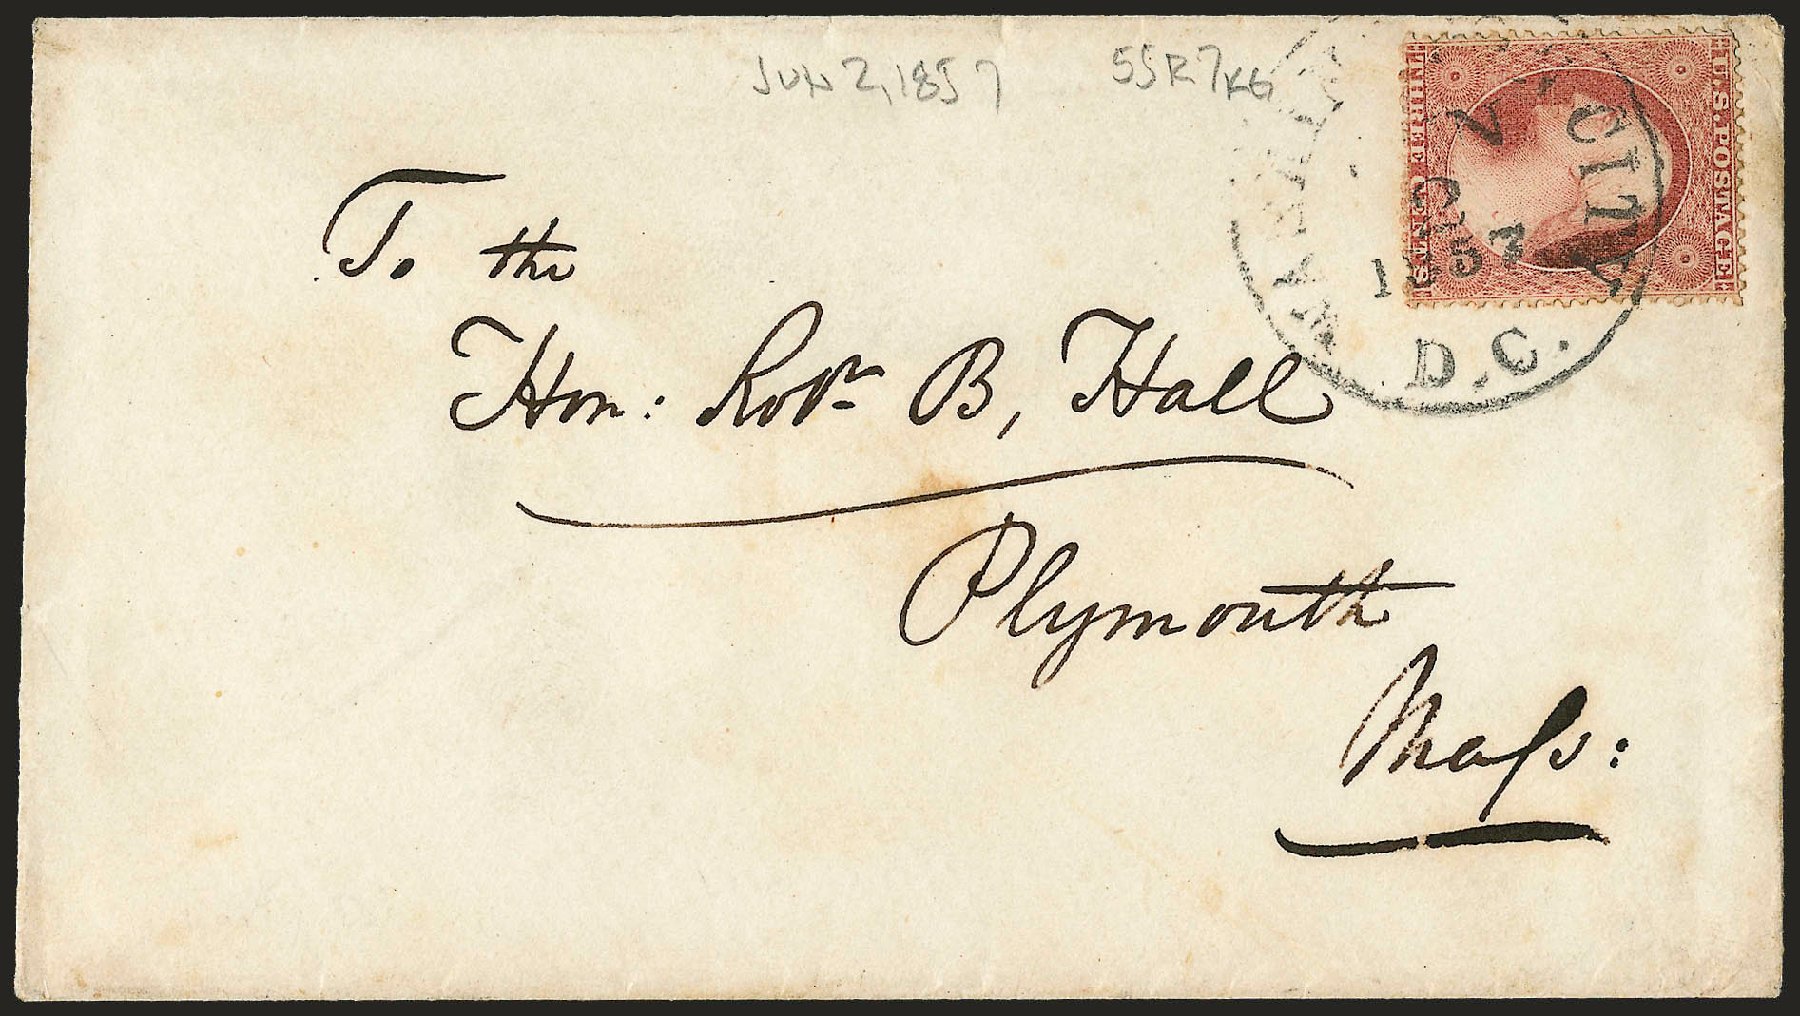 JUN 2, 1857 55R7KG
U.S. POSTAGE
THREE CENTS
WASHINGTON CITY
1857
D.C.
To the
Hon: Robt B, Hall
Plymouth
Mass: